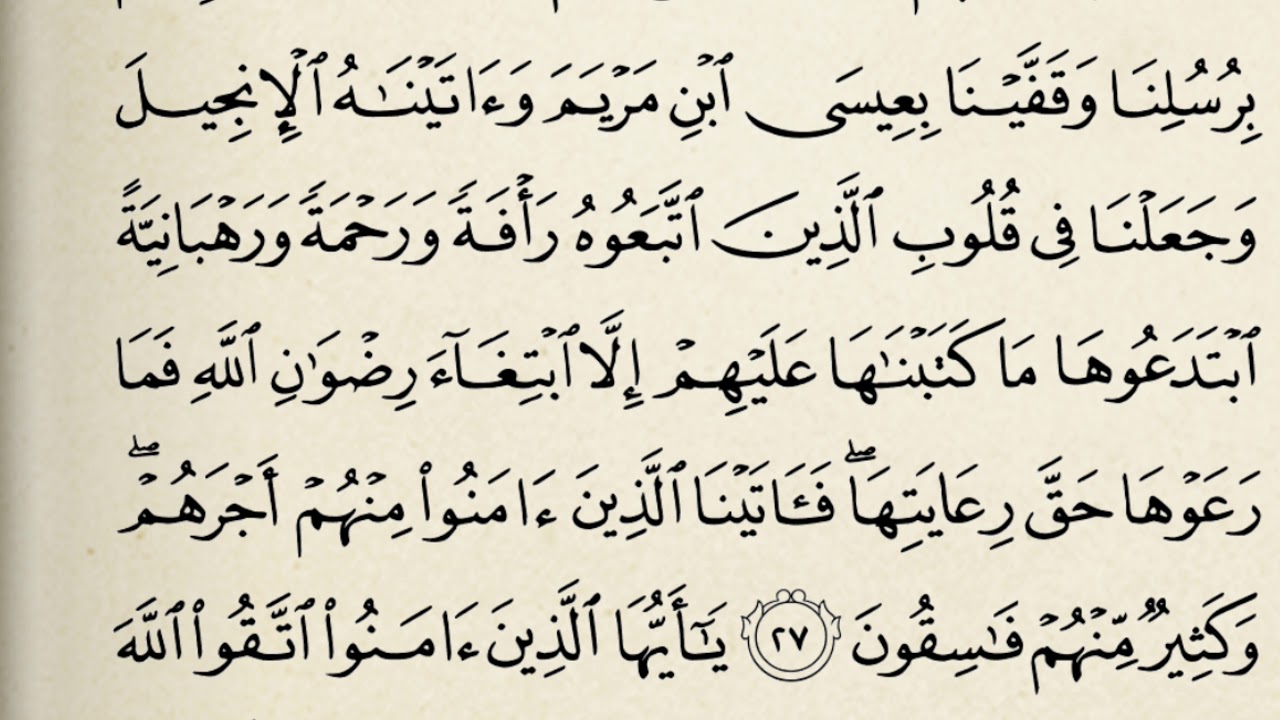 بِرُسُلِنَا وَقَفَّيْنَا بِعِيسَى ٱبْنِ مَرْيَمَ وَءَاتَيْنَـٰهُ ٱلْإِنجِيلَ
وَجَعَلْنَا فِى قُلُوبِ ٱلَّذِينَ ٱتَّبَعُوهُ رَأْفَةً وَرَحْمَةً وَرَهْبَانِيَّةً
ٱبْتَدَعُوهَا مَا كَتَبْنَـٰهَا عَلَيْهِمْ إِلَّا ٱبْتِغَآءَ رِضْوَٰنِ ٱللَّهِ فَمَا
رَعَوْهَا حَقَّ رِعَايَتِهَا ۖ فَـَٔاتَيْنَا ٱلَّذِينَ ءَامَنُوا۟ مِنْهُمْ أَجْرَهُمْ ۖ
وَكَثِيرٌ مِّنْهُمْ فَـٰسِقُونَ ٢٧ يَـٰٓأَيُّهَا ٱلَّذِينَ ءَامَنُوا۟ ٱتَّقُوا۟ ٱللَّهَ